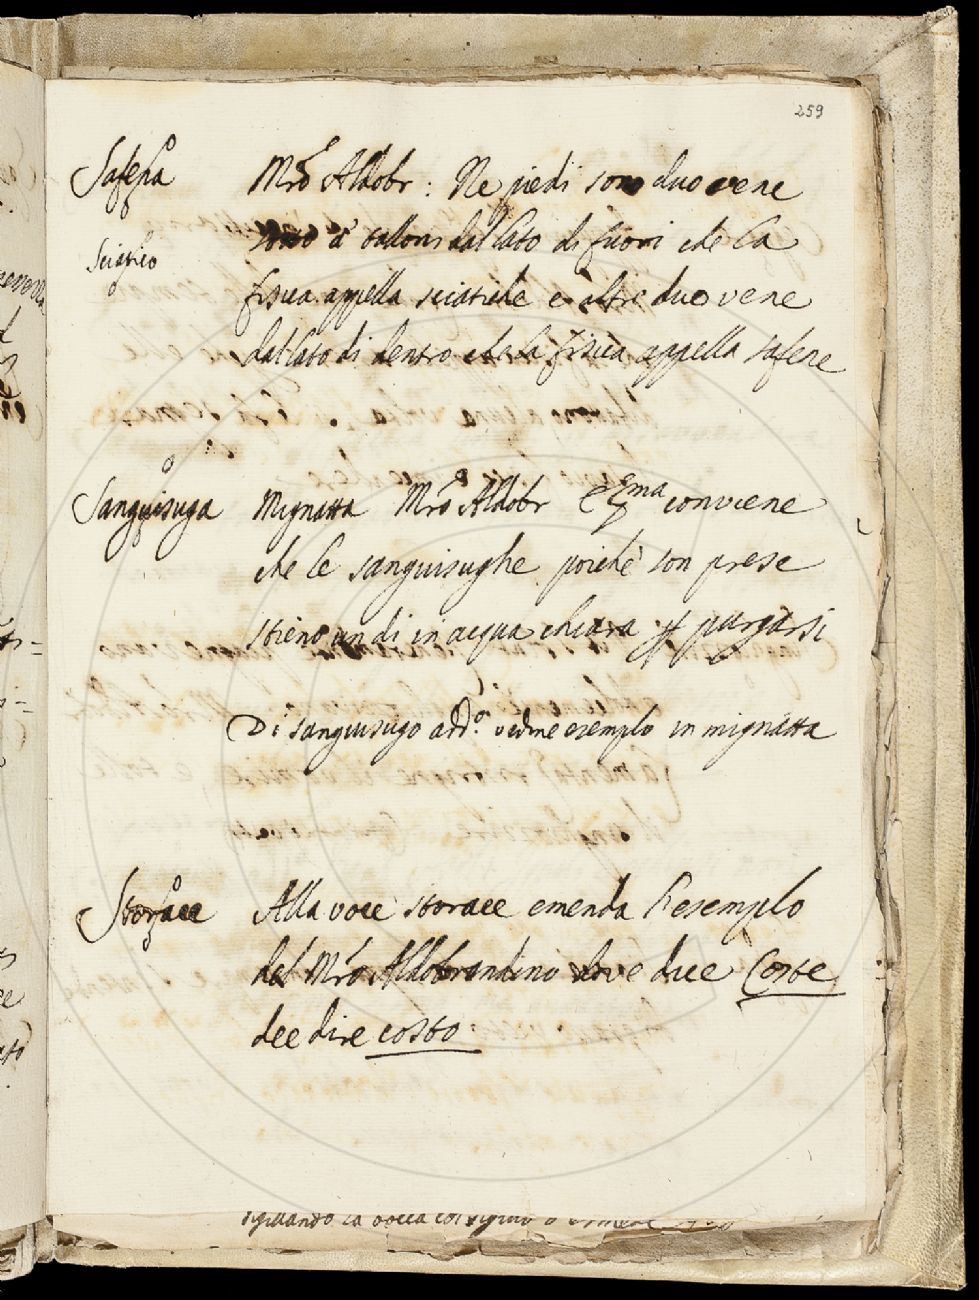 259
Safena Mro Aldobr: Ne piedi sono duo vene
sotto a' talloni dal lato di fuori che la
Sciatico
fisica appella sciatiche e altre duo vene
dal lato di dentro che la fisica appella safene
Sanguisuga Mignatta Mro Aldobr conviene
che le sanguisughe poichè son prese
stieno un di in acqua chiara purgarsi
Di sanguisugo add.o vedine esemplo in mignatta
Storace Alla voce storace emenda l'esemplo
del Mro Aldobrandino dove dice Coste
dee dire costo